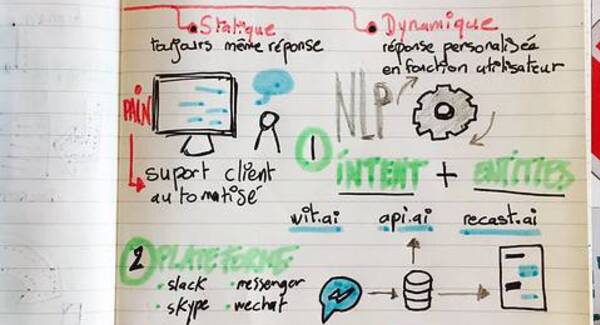 Statique
toujours même réponse
Dynamique
réponse personalisée
en fonction utilisateur
PAIN
suport client
automatisé
NLP
1
INTENT + ENTITIES
wit.ai
api.ai
recast.ai
2 PLATEFORME
• slack • messenger
• skype • wechat